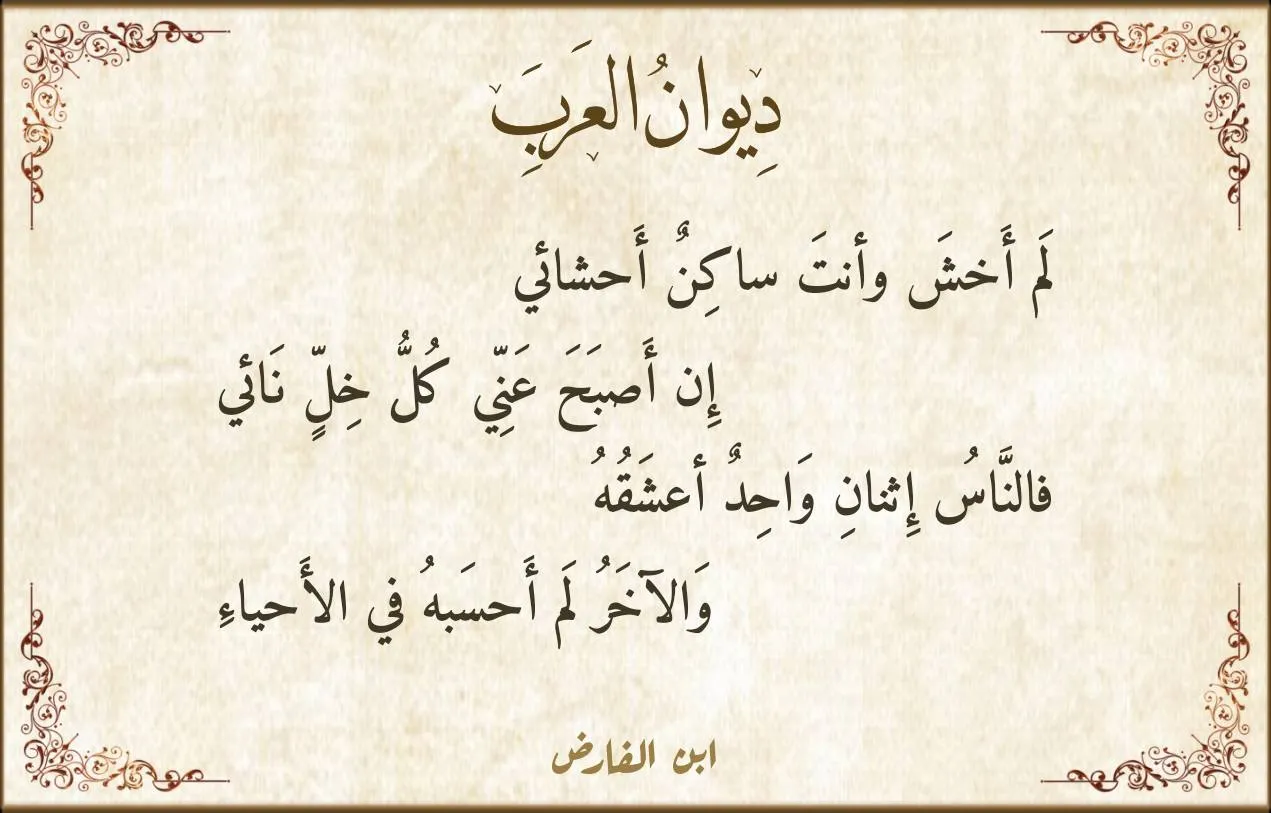 دِيوانُ العَرَبَ
لَم أَخشَ وأنتَ ساكِنٌ أَحشائي
إِن أَصبَحَ عَنِّي كُلُّ خِلٍّ نَائي
فالنَّاسُ إِثنانِ وَاحِدٌ أعشَقُهُ
وَالآخَرُ لَم أَحسَبهُ في الأَحياءِ
ابن الفارض